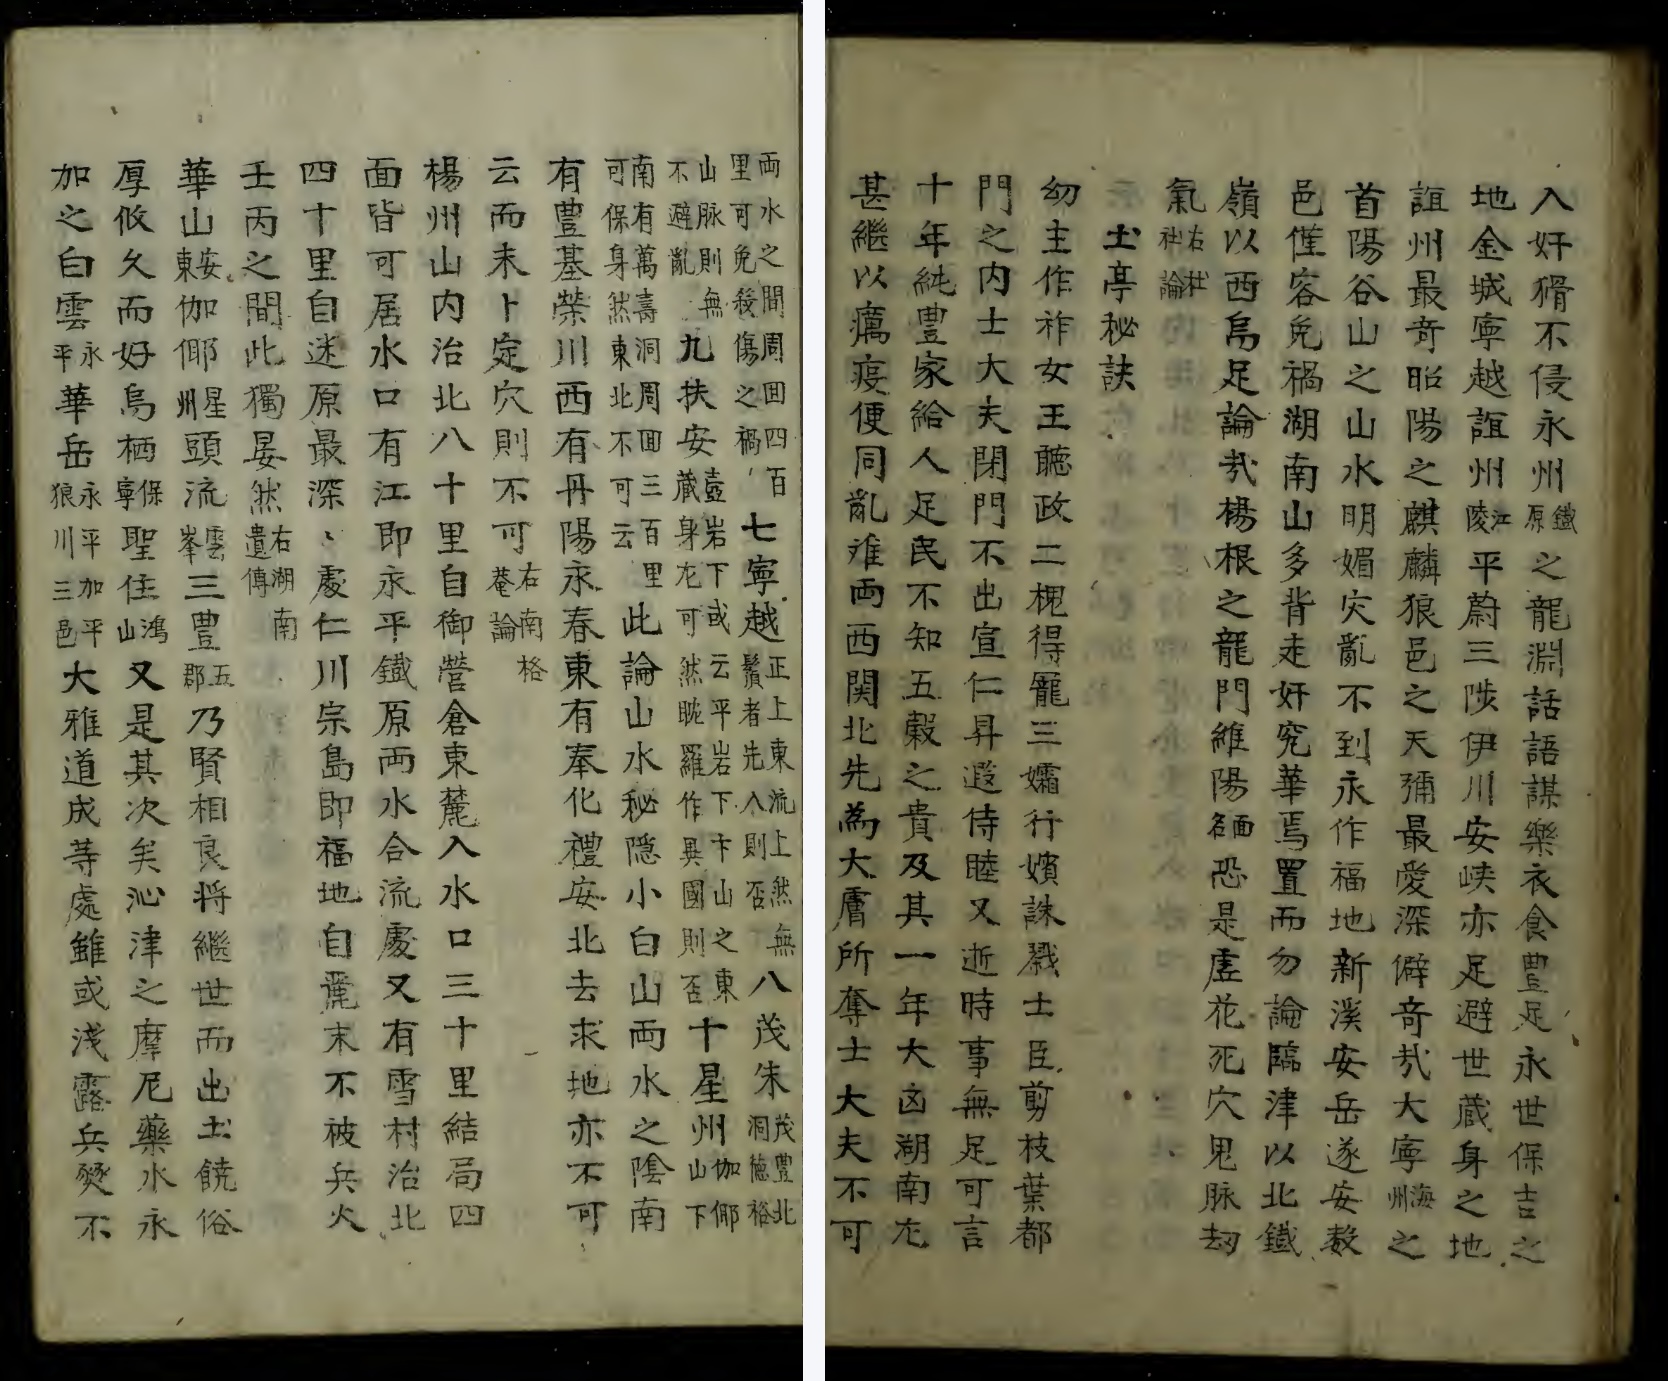 両水之間周囬四百里可免殺傷之禍七寧越正上東流上然無鬚者先入則否八茂朱茂豊北洞德裕
山脉則無不避亂九扶安壺岩下或云平岩下卞山之東蔵身尢可然眈羅作異國則否十星州伽倻山下
南有萬壽洞周囬三百里可保身然東北不可云此論山水秘隠小白山両水之陰南
有豊基榮川西有丹陽永春東有奉化禮安北去求地亦不可
云而未卜定穴則不可右南格菴論
楊州山内治北八十里自御營倉東麓入水口三十里結局四
面皆可居水口有江即永平鐵原両水合流處又有雪村治北
四十里自迷原最深〻處仁川宗島即福地自麗末不被兵火
壬丙之間此獨晏然右湖南遺傳
華山安東伽倻星州頭流雲峯三豊五郡乃賢相良将繼世而出土饒俗
厚攸久而好鳥栖保寧聖住鴻山又是其次矣沁津之摩尼藥水永
加之白雲永平華岳永平加平狼川三邑大雅道成等處雖或淺露兵燹不
入奸猾不侵永州鐵原之龍淵話語謀樂衣食豊足永世保吉之
地金城寧越誼州江陵平蔚三陟伊川安峽亦足避世蔵身之地
誼州最奇昭陽之麒麟狼邑之天彌最愛深僻奇㢤大寧海州之
首陽谷山之山水明媚灾亂不到永作福地新溪安岳遂安数
邑僅容免禍湖南山多背走奸宄華焉置而勿論臨津以北鐵
嶺以西烏足論㢤楊根之龍門維陽面名恐是虚花死穴鬼脉刼
氣右杜社論
土亭秘訣
幼主作祚女王聴政二槐得寵三孀行嬪誅戮士臣剪枝葉都
門之内士大夫閉門不出宣仁昇遐侍睦又逝時事無足可言
十年純豊家給人足民不知五穀之貴及其一年大凶湖南尢
甚繼以癘疫便同亂难両西関北先為大膚所奪士大夫不可